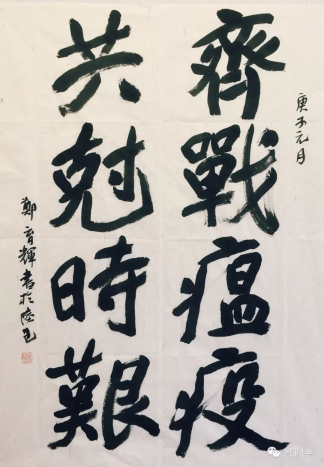 庚子元月
齊戰瘟疫
共尅時艱
鄭育輝書於陸邑